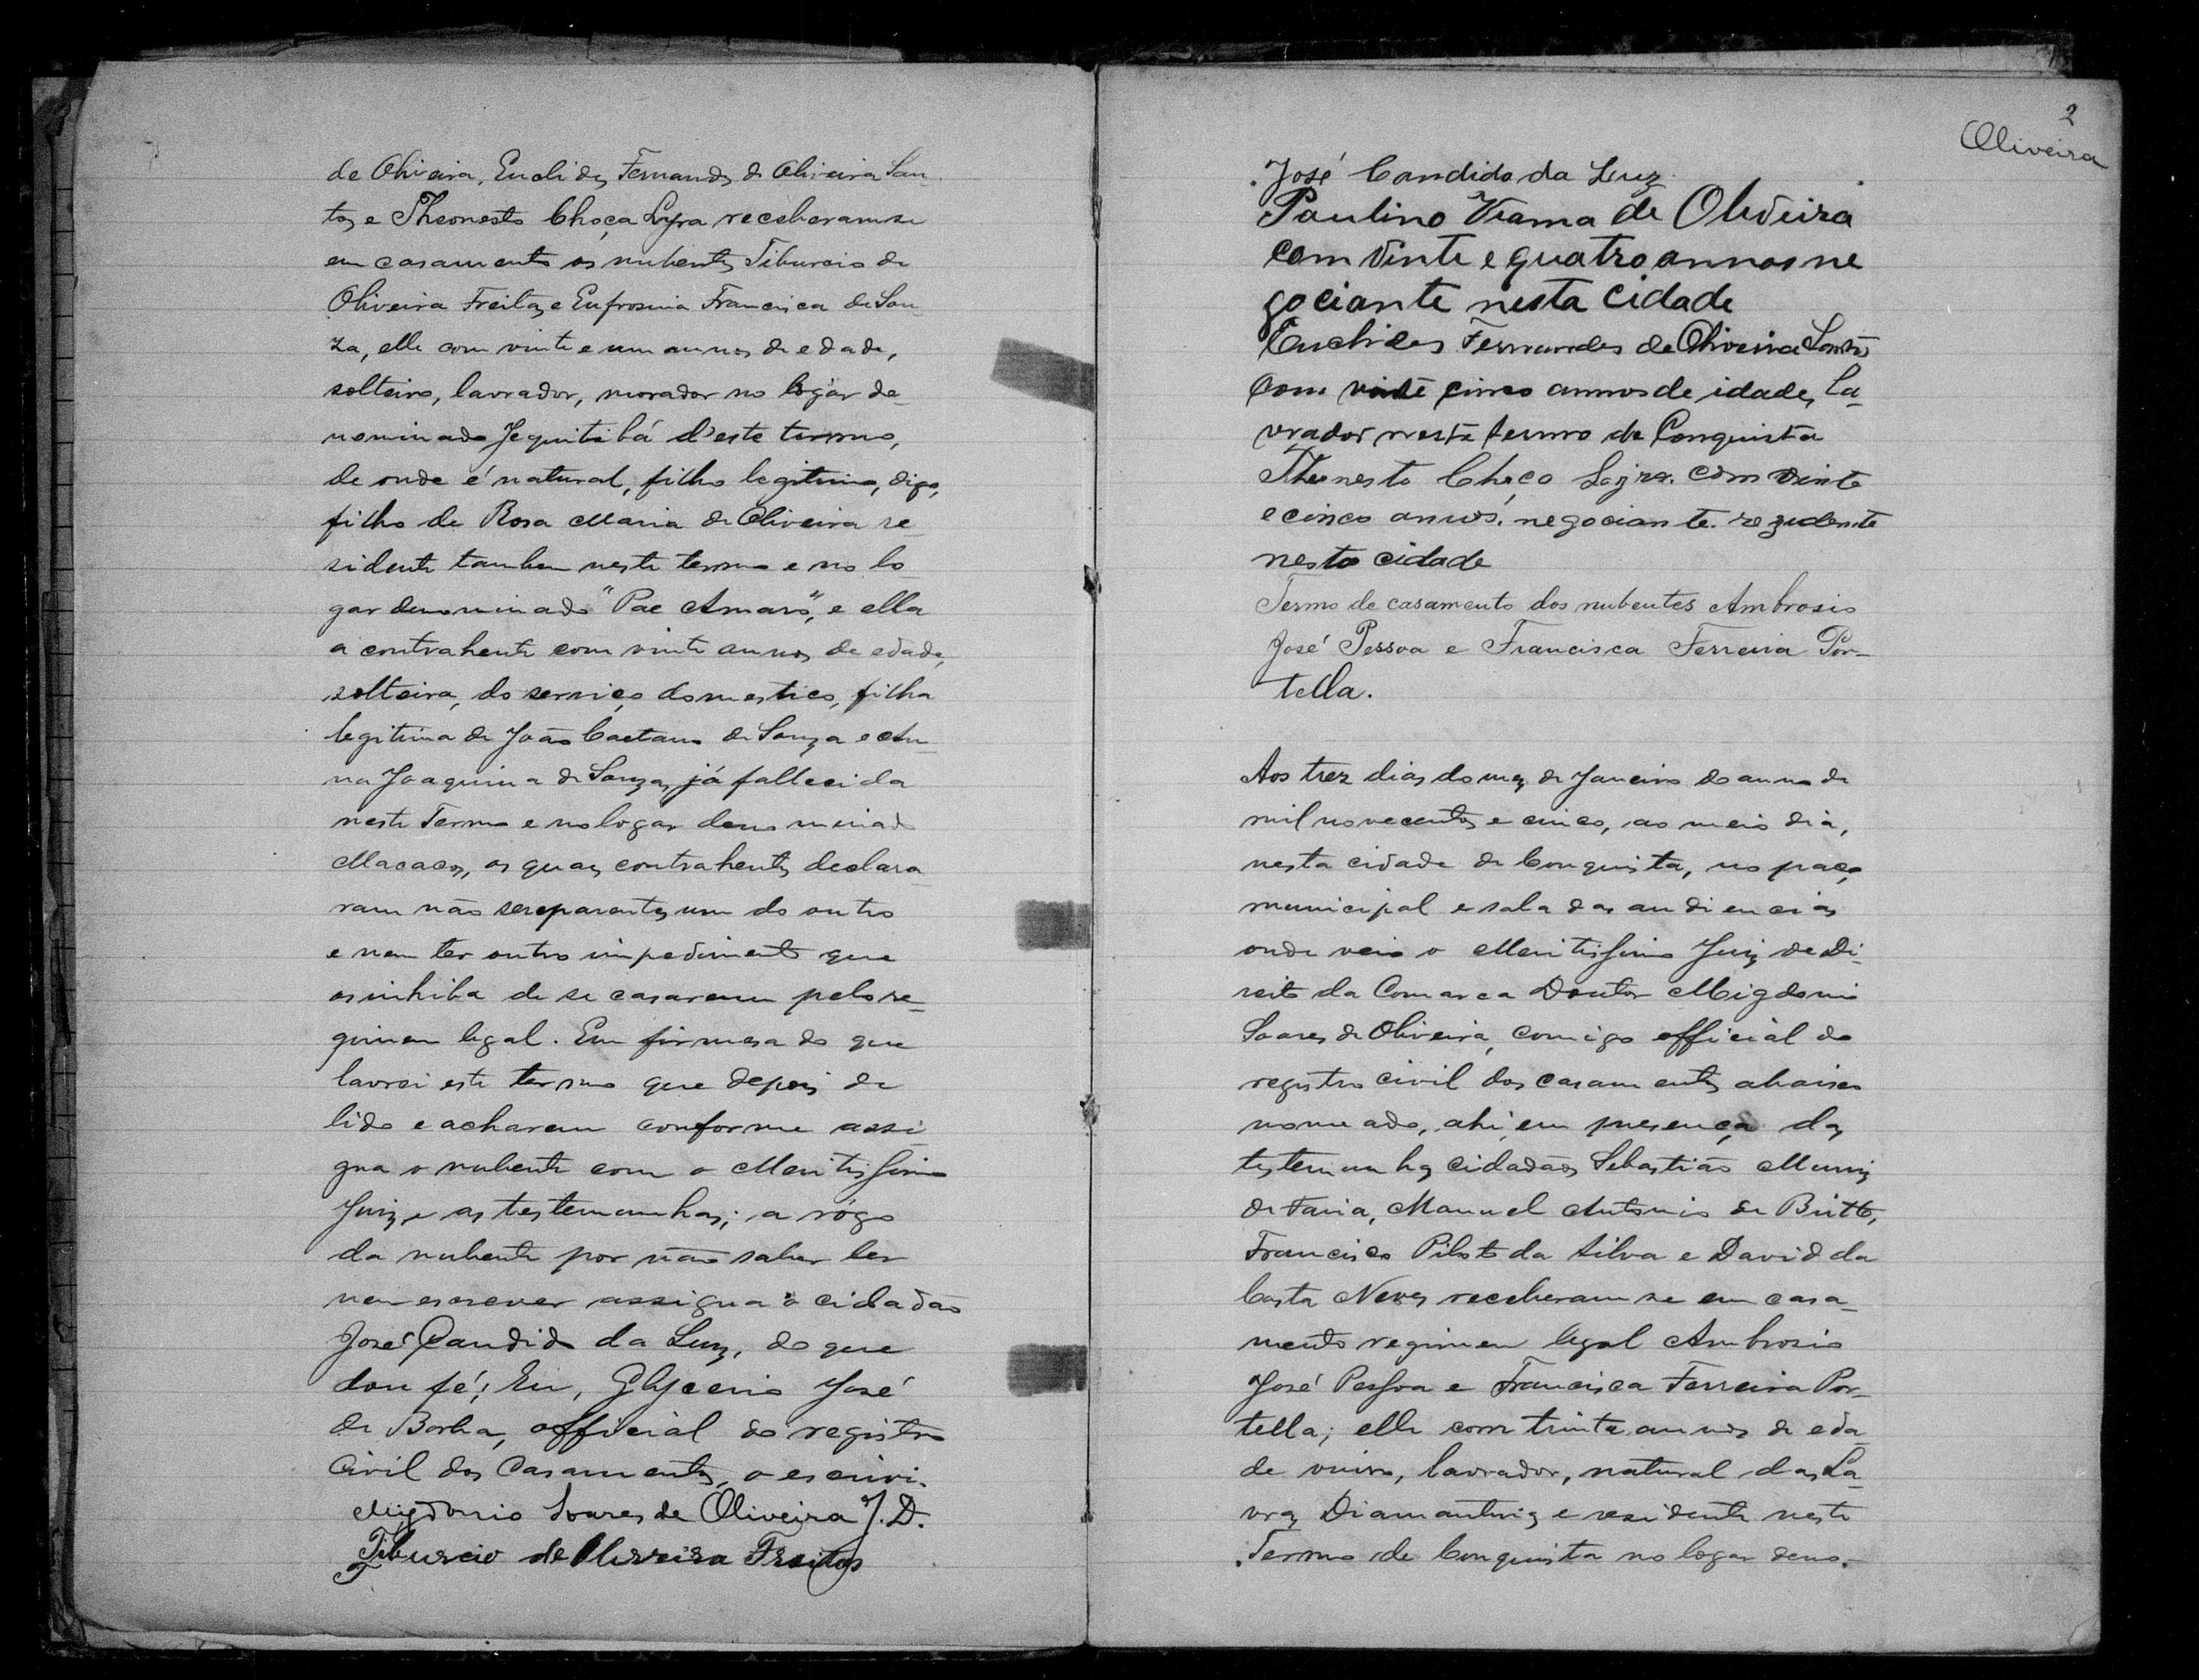 de Oliveira, Euclides Fernandes de Oliveira San-
tos e Theonesto Choça Lyra receberam se
em casamento os nubentes Tiburcio de
Oliveira Freitas e Eufrosina Francisca de Sou
za, elle com vinte e um annos de edade,
solteiro, lavrador, morador no logar de-
nominado Jequitibá d'este termo,
de onde é natural, filho legitimo, digo,
filho de Rosa Maria de Oliveira re-
sidente tambem neste termo e no lo-
gar denominado "Pae Amaro", e ella
a contrahente com vinte annos de edade,
solteira, do serviço domestico, filha
legitima de João Caetano de Souza e An-
na Joaquina de Souza, já fallecida
neste Termo e no logar denominado
Macacos, os quaes contrahentes declara-
ram não ser parentes um do outro
e nem ter outro impedimento que
os inhiba de se casarem pelo re-
gimen legal. Em firmesa do que
lavrei este termo que depois de
lido e acharem conforme assi-
gna o nubente com o Meritissimo
Juiz e as testemunhas; a rógo
da nubente por não saber ler
nem escrever assigna o cidadão
José Candido da Luz, do que
dou fé; Eu, Glycerio José
de Borba, official do registro
Civil dos Casamentos, o escrivi.
Migdonio Soares de Oliveira J. D.
Tiburcio de Oliveira Freitas
2
Oliveira
José Candido da Luz
Paulino Viana de Oliveira
com vinte e quatro annos ne
gociante nesta cidade
Euclides Fernandes de Oliveira Santos
com vinte cinco annos de idade, La-
vrador neste termo de Conquista
Theonesto Choça Lyra. com vinte
e cinco annos. negociante. rezidente
nesta cidade
Termo de casamento dos nubentes Ambrosio
José Pessoa e Francisca Ferreira Por-
tella.
Aos trez dias do mez de Janeiro do anno de
mil novecentos e cinco, ao meio dia,
nesta cidade de Conquista, no paço
municipal e sala das audiencias
onde veio o Meritissimo Juiz de Di-
reito da Comarca Doutor Migdonio
Soares de Oliveira, comigo official do
registro civil dos casamentos abaixo
nomeado, ahi, em presença das
testemunhas cidadãos Sebastião Muniz
de Faria, Manuel Antonio de Britto,
Francisco Piloto da Silva e David da
Costa Neves receberam se em casa-
mento regimen legal Ambrosio
José Pessoa e Francisca Ferreira Por-
tella; elle com trinta annos de eda-
de viuvo, lavrador, natural das La-
vras Diamantinas e residente neste
Termo de Conquista no logar deno-